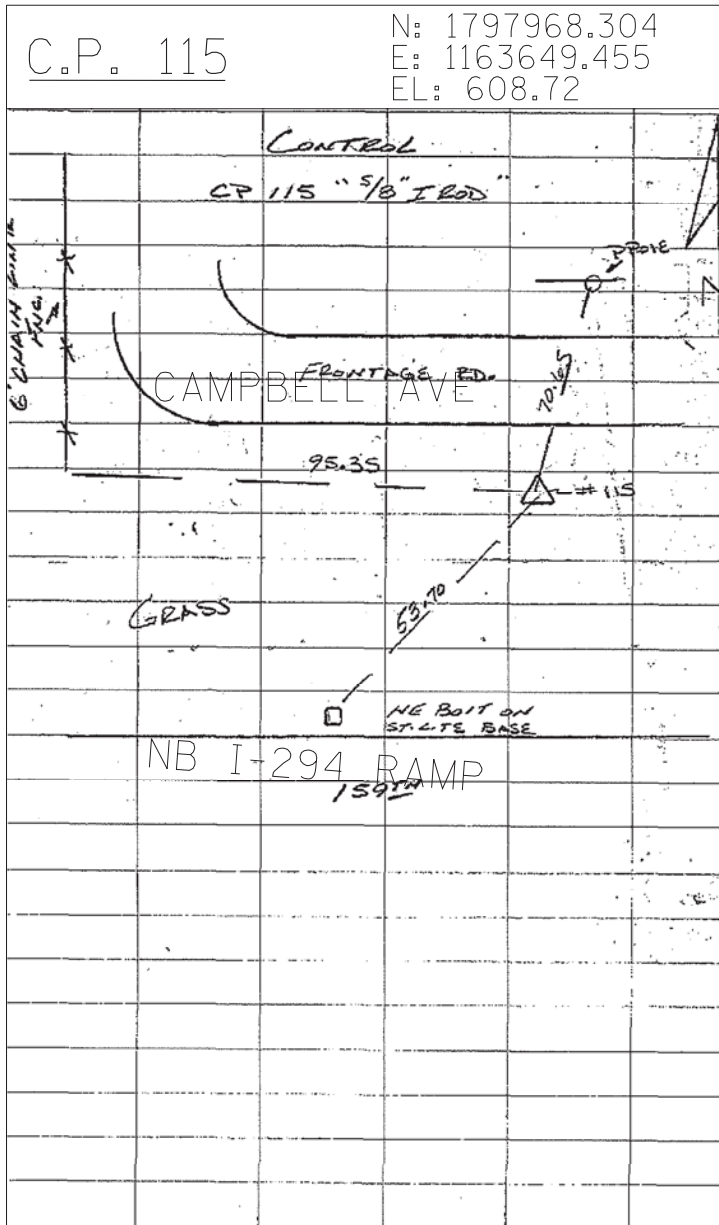 C.P. 115
N: 1797968.304
E: 1163649.455
EL: 608.72
CONTROL
CP 115 " 5/8" I ROD"
PPOLE
6' CHAIN LINK
FNC.
FRONTAGE RD.
CAMPBELL AVE
70.65
95.35
#115
GRASS
53.70
NE BOLT ON
ST. LITE BASE
NB I-294 RAMP
159TH